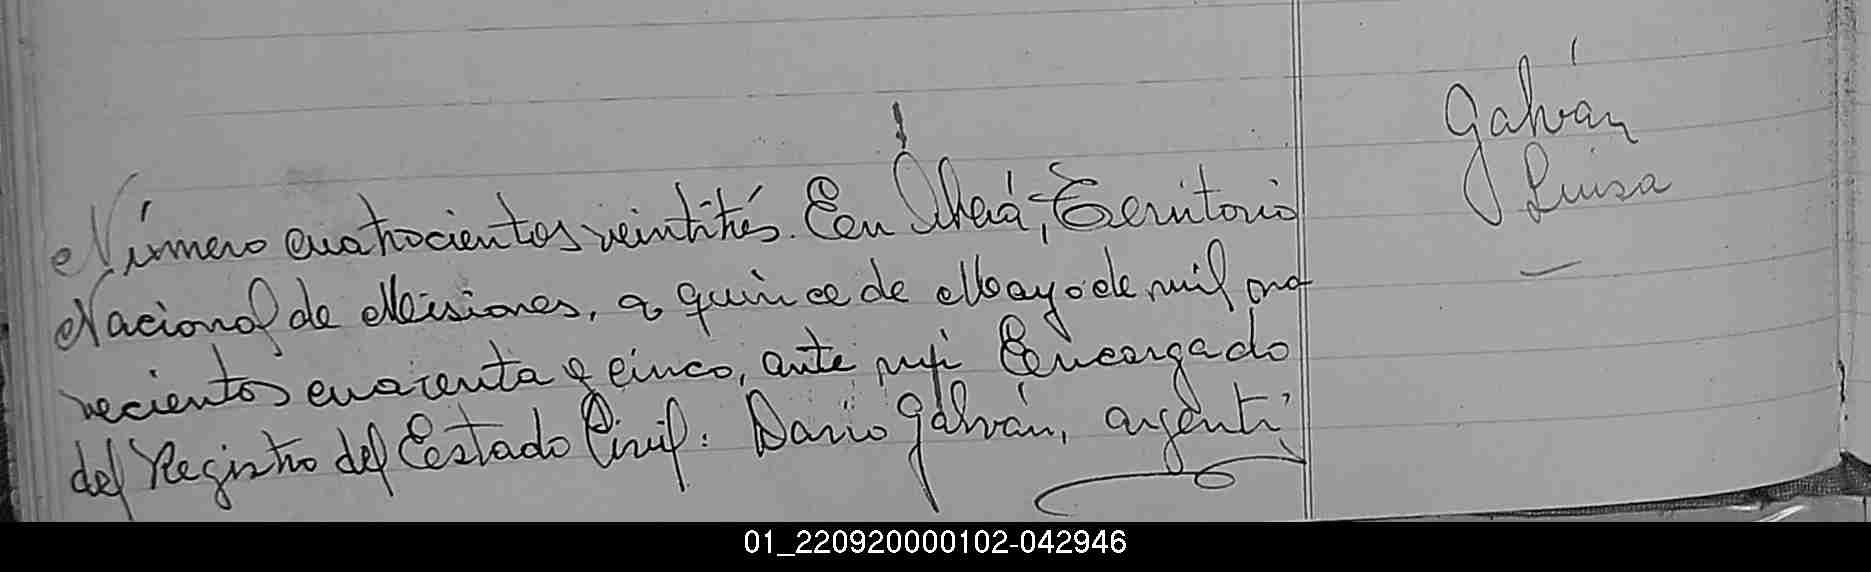 Número cuatrocientos veintitrés. En Oberá, Territorio
Nacional de Misiones, a quince de Mayo de mil no-
vecientos cuarenta y cinco, ante mi Encargado
del Registro del Estado Civil: Dario Galván, argenti
Galván
Luisa
01_220920000102-042946